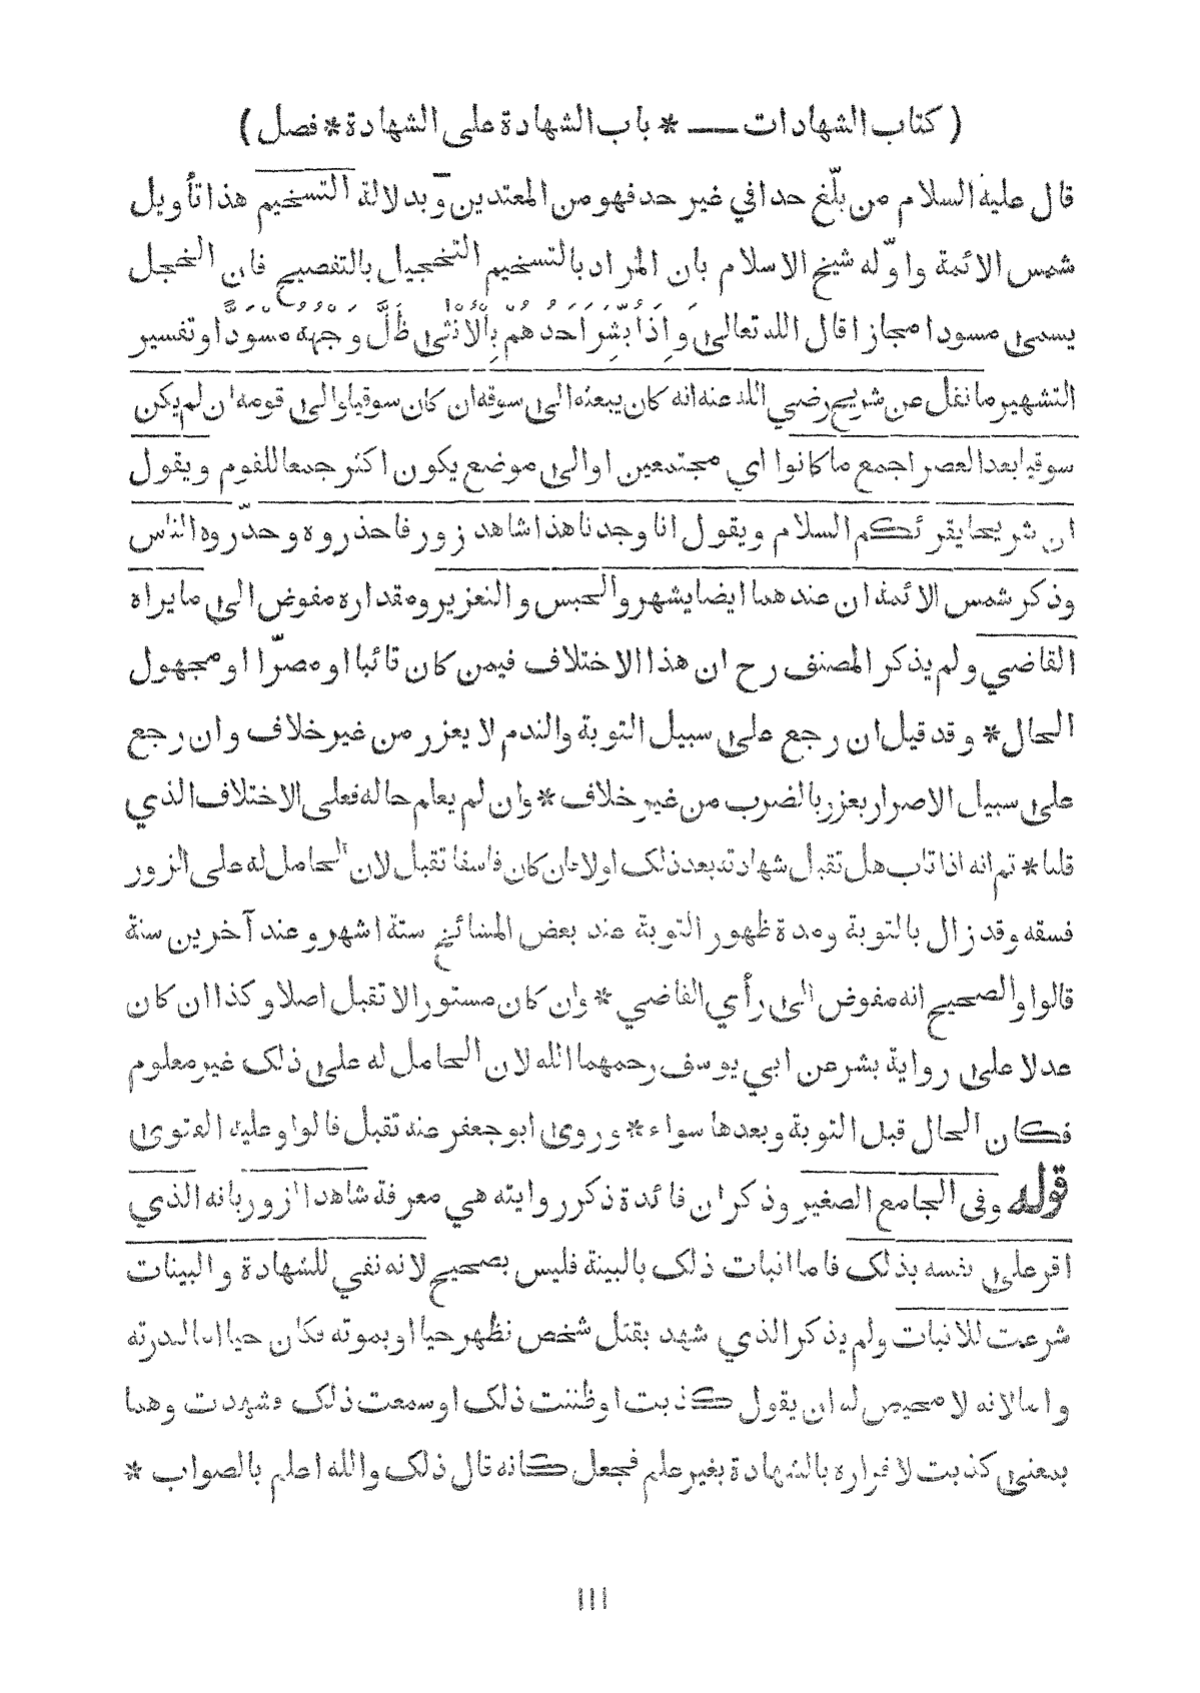 ( كتاب الشهادات — * باب الشهادة على الشهادة * فصل )
قال عليه السلام من بلّغ حدا في غير حد فهو من المعتدين وبدلالة التسخيم هذا تأويل
شمس الائمة واوّله شيخ الاسلام بان المراد بالتسخيم التخجيل بالتفصيح فان الخجل
يسمى مسودا مجازا قال الله تعالى وَاِذَا بُشِّرَ اَحَدُهُمْ بِالْاُنْثٰى ظَلَّ وَجْهُهُ مُسْوَدًّا وتفسير
التشهير ما نقل عن شريح رضي الله عنه انه كان يبعثه الى سوقه ان كان سوقيا والى قومه ان لم يكن
سوقيا بعد العصر اجمع ما كانوا اي مجتمعين او الى موضع يكون اكثر جمعا للقوم ويقول
ان شريحا يقرئكم السلام ويقول انا وجدنا هذا شاهد زور فاحذروه وحذّروه الناس
وذكر شمس الائمة ان عندهما ايضا يشهر والحبس والتعزير ومقداره مفوض الى ما يراه
القاضي ولم يذكر المصنف رح ان هذا الاختلاف فيمن كان تائبا او مصرّا او مجهول
الحال * وقد قيل ان رجع على سبيل التوبة والندم لا يعزر من غير خلاف وان رجع
على سبيل الاصرار يعزر بالضرب من غير خلاف * وان لم يعلم حاله فعلى الاختلاف الذي
قلنا * ثم انه اذا تاب هل تقبل شهادته بعد ذلك او لا فان كان فاسقا تقبل لان الحامل له على الزور
فسقه وقد زال بالتوبة ومدة ظهور التوبة عند بعض المشائخ ستة اشهر وعند آخرين سنة
قالوا والصحيح انه مفوض الى رأي القاضي * وان كان مستورا لا تقبل اصلا وكذا ان كان
عدلا على رواية بشر عن ابي يوسف رحمهما الله لان الحامل له على ذلك غير معلوم
فكان الحال قبل التوبة وبعدها سواء * وروى ابو جعفر عنه تقبل قالوا وعليه الفتوى
قوله وفى الجامع الصغير وذكر ان فائدة ذكر روايته هي معرفة شاهد الزور بانه الذي
اقر على نفسه بذلك فاما اثبات ذلك بالبينة فليس بصحيح لانه نفي للشهادة والبينات
شرعت للاثبات ولم يذكر الذي شهد بقتل شخص نظهر حيا او بموته فكان حيا اما لندرته
واما لانه لا محيص له ان يقول كذبت او ظننت ذلك او سمعت ذلك فشهدت وهما
بمعنى كذبت لاقراره بالشهادة بغير علم فجعل كانه قال ذلك والله اعلم بالصواب *
١١١